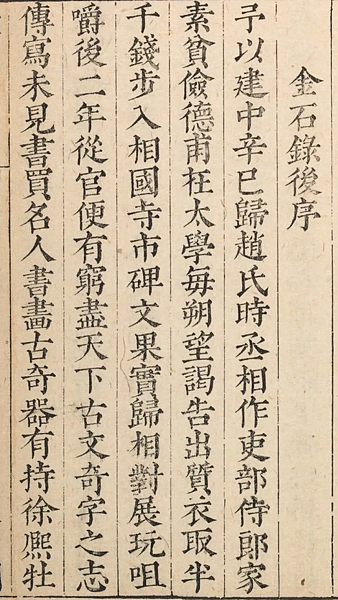 金石錄後序
予以建中辛巳歸趙氏時丞相作吏部侍郎家
素貧儉德甫在太學每朔望謁告出質衣取半
千錢步入相國寺市碑文果實歸相對展玩咀
嚼後二年從官便有窮盡天下古文奇字之志
傳寫未見書買名人書畵古奇器有持徐熈牡